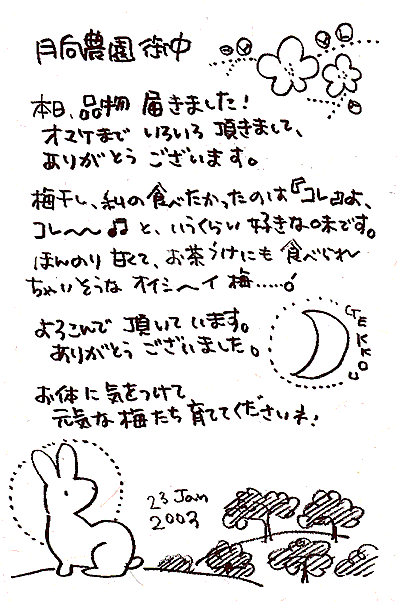 月向農園 御中
本日、品物 届きました!
オマケまで いろいろ 頂きまして、
ありがとう ございます。
梅干し、私の食べたかったのは『コレ♫よ、
コレ〜〜♫ と、いうくらい 好きな味です。
ほんのり 甘くて、お茶うけにも 食べられ
ちゃいそうな オイシ〜イ 梅……!
よろこんで 頂いて います。
ありがとう ございました。
お体に気をつけて
元気な 梅たち 育ててくださいネ!
TEKKOU
23 Jan
2003